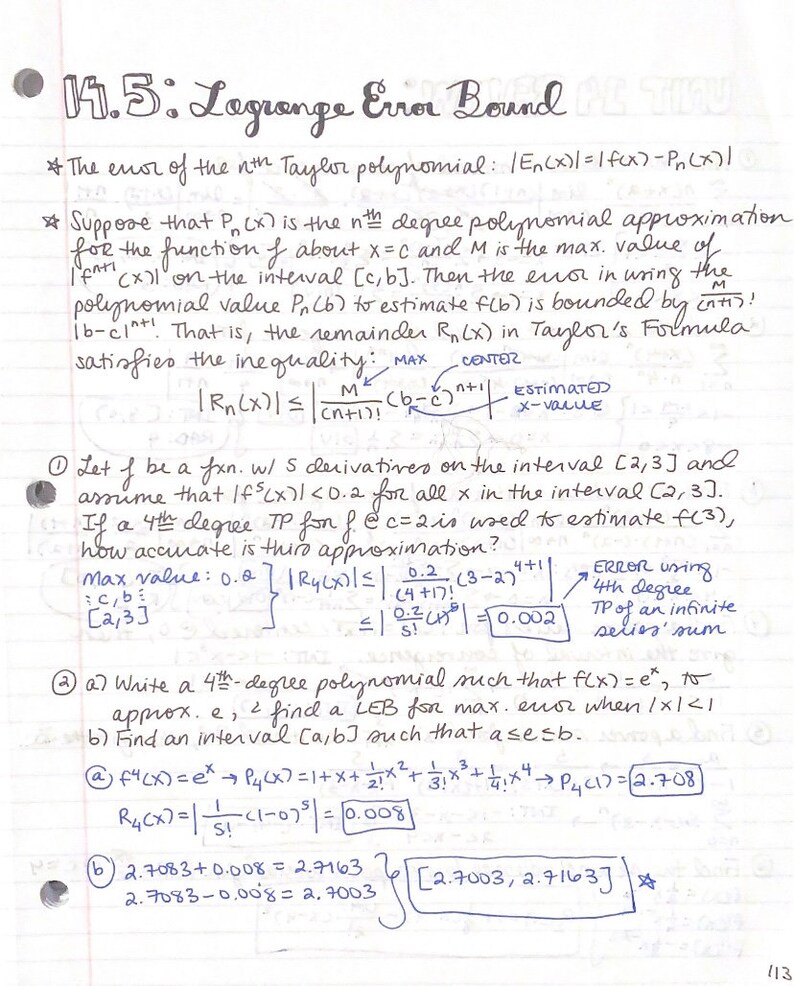 14.5: Lagrange Error Bound
☆ The error of the nth Taylor polynomial: |Eₙ(x)| = |f(x) - Pₙ(x)|
☆ Suppose that Pₙ(x) is the nth degree polynomial approximation
for the function f about x=c and M is the max. value of
|fⁿ⁺¹(x)| on the interval [c,b]. Then the error in using the
polynomial value Pₙ(b) to estimate f(b) is bounded by M/(n+1)!
|b-c|ⁿ⁺¹. That is, the remainder Rₙ(x) in Taylor's Formula
satisfies the inequality:
MAX CENTER
|Rₙ(x)| ≤ |M/(n+1)! (b-c)ⁿ⁺¹| ESTIMATED
X-VALUE
① Let f be a fxn. w/ 5 derivatives on the interval [2,3] and
assume that |f⁵(x)| < 0.2 for all x in the interval [2,3].
If a 4th degree TP for f @ c=2 is used to estimate f(3),
how accurate is this approximation?
Max value: 0.2 } |R₄(x)| ≤ |0.2/(4+1)! (3-2)⁴⁺¹| → ERROR using
: c, b : 4th degree
[2,3] ≤ |0.2/5! (1)⁵| = 0.002 TP of an infinite
series' sum
② a) Write a 4th-degree polynomial such that f(x)=eˣ, to
approx. e, & find a LEB for max. error when |x|<1
b) Find an interval [a,b] such that a≤e≤b.
ⓐ f⁴(x)=eˣ → P₄(x)=1+x+1/2!x²+1/3!x³+1/4!x⁴ → P₄(1)= 2.708
R₄(x)=|1/5! (1-0)⁵| = 0.008
ⓑ 2.7083+0.008 = 2.7163 } [2.7003, 2.7163] ☆
2.7083-0.008 = 2.7003
113